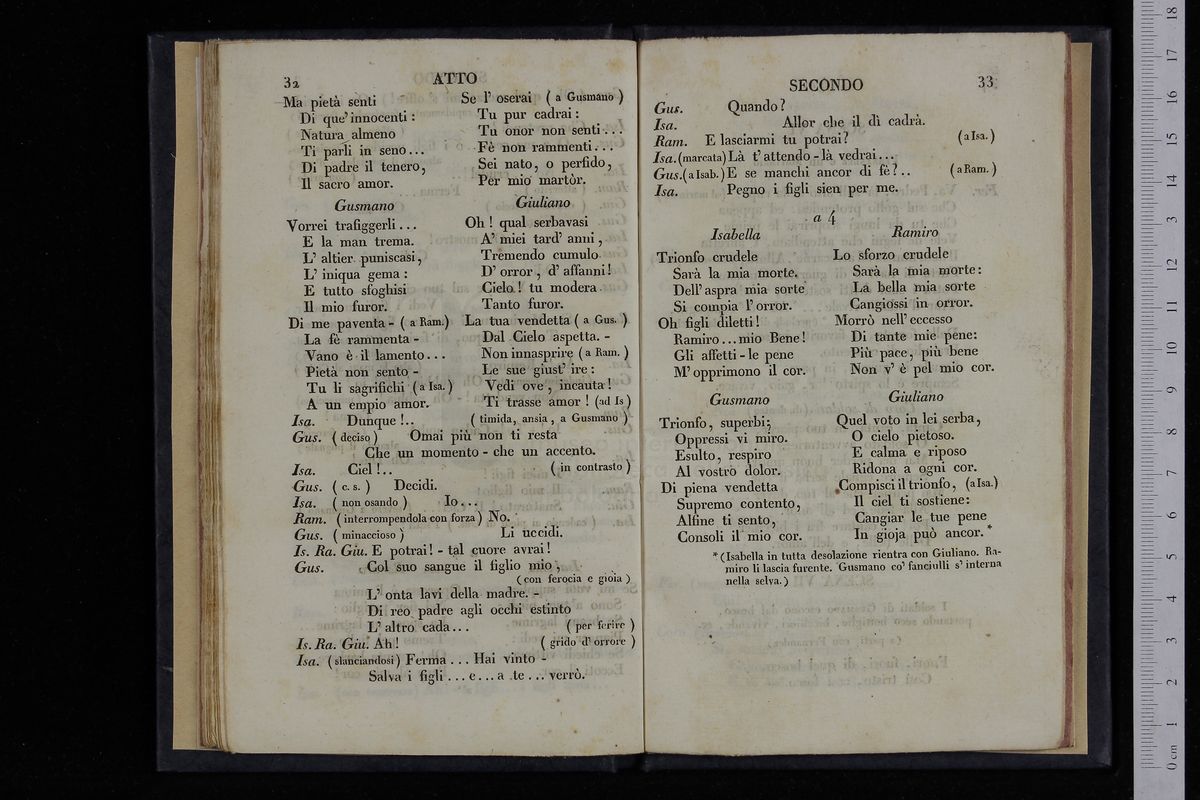 32 ATTO
Ma pietà senti
Di que' innocenti :
Natura almeno
Ti parli in seno...
Di padre il tenero,
Il sacro amor.
Se l' oserai ( a Gusmano )
Tu pur cadrai :
Tu onor non senti...
Fè non rammenti...
Sei nato, o perfido,
Per mio martòr.
Gusmano
Vorrei trafiggerli...
E la man trema.
L' altier puniscasi,
L' iniqua gema :
E tutto sfoghisi
Il mio furor.
Di me paventa - ( a Ram.)
La fè rammenta -
Vano è il lamento...
Pietà non sento -
Tu li sagrifichi ( a Isa. )
A un empio amor.
Giuliano
Oh ! qual serbavasi
A' miei tard' anni ,
Tremendo cumulo
D' orror , d' affanni !
Cielo ! tu modera
Tanto furor.
La tua vendetta ( a Gus. )
Dal Cielo aspetta. -
Non innasprire ( a Ram. )
Le sue giust' ire :
Vedi ove , incauta !
Ti trasse amor ! (ad Is )
Isa. Dunque !.. ( timida, ansia , a Gusmano )
Gus. ( deciso ) Omai più non ti resta
Che un momento - che un accento.
Isa. Ciel !.. ( in contrasto )
Gus. ( c. s. ) Decidi.
Isa. ( non osando ) Io...
Ram. ( interrompendola con forza ) No.
Gus. ( minaccioso ) Li uccidi.
Is. Ra. Giu. E potrai ! - tal cuore avrai !
Gus. Col suo sangue il figlio mio ,
( con ferocia e gioia )
L' onta lavi della madre. -
Di reo padre agli occhi estinto
L' altro cada... ( per ferire )
Is. Ra. Giu. Ah ! ( grido d' orrore )
Isa. ( slanciandosi ) Ferma ... Hai vinto -
Salva i figli ... e... a te ... verrò.
SECONDO 33
Gus. Quando ?
Isa. Allor che il dì cadrà.
Ram. E lasciarmi tu potrai ? ( a Isa. )
Isa. (marcata) Là t' attendo - là vedrai...
Gus. ( a Isab. ) E se manchi ancor di fè ?.. ( a Ram. )
Isa. Pegno i figli sien per me.
a 4
Isabella
Trionfo crudele
Sarà la mia morte.
Dell' aspra mia sorte
Si compia l' orror.
Oh figli diletti !
Ramiro... mio Bene !
Gli affetti - le pene
M' opprimono il cor.
Ramiro
Lo sforzo crudele
Sarà la mia morte :
La bella mia sorte
Cangiossi in orror.
Morrò nell' eccesso
Di tante mie pene :
Più pace, più bene
Non v' è pel mio cor.
Gusmano
Trionfo, superbi;
Oppressi vi miro.
Esulto, respiro
Al vostro dolor.
Di piena vendetta
Supremo contento,
Alfine ti sento,
Consoli il mio cor.
Giuliano
Quel voto in lei serba,
O cielo pietoso.
E calma e riposo
Ridona a ogni cor.
Compisci il trionfo, ( a Isa. )
Il ciel ti sostiene :
Cangiar le tue pene
In gioja può ancor. *
* ( Isabella in tutta desolazione rientra con Giuliano. Ra-
miro li lascia furente. Gusmano co' fanciulli s' interna
nella selva. )